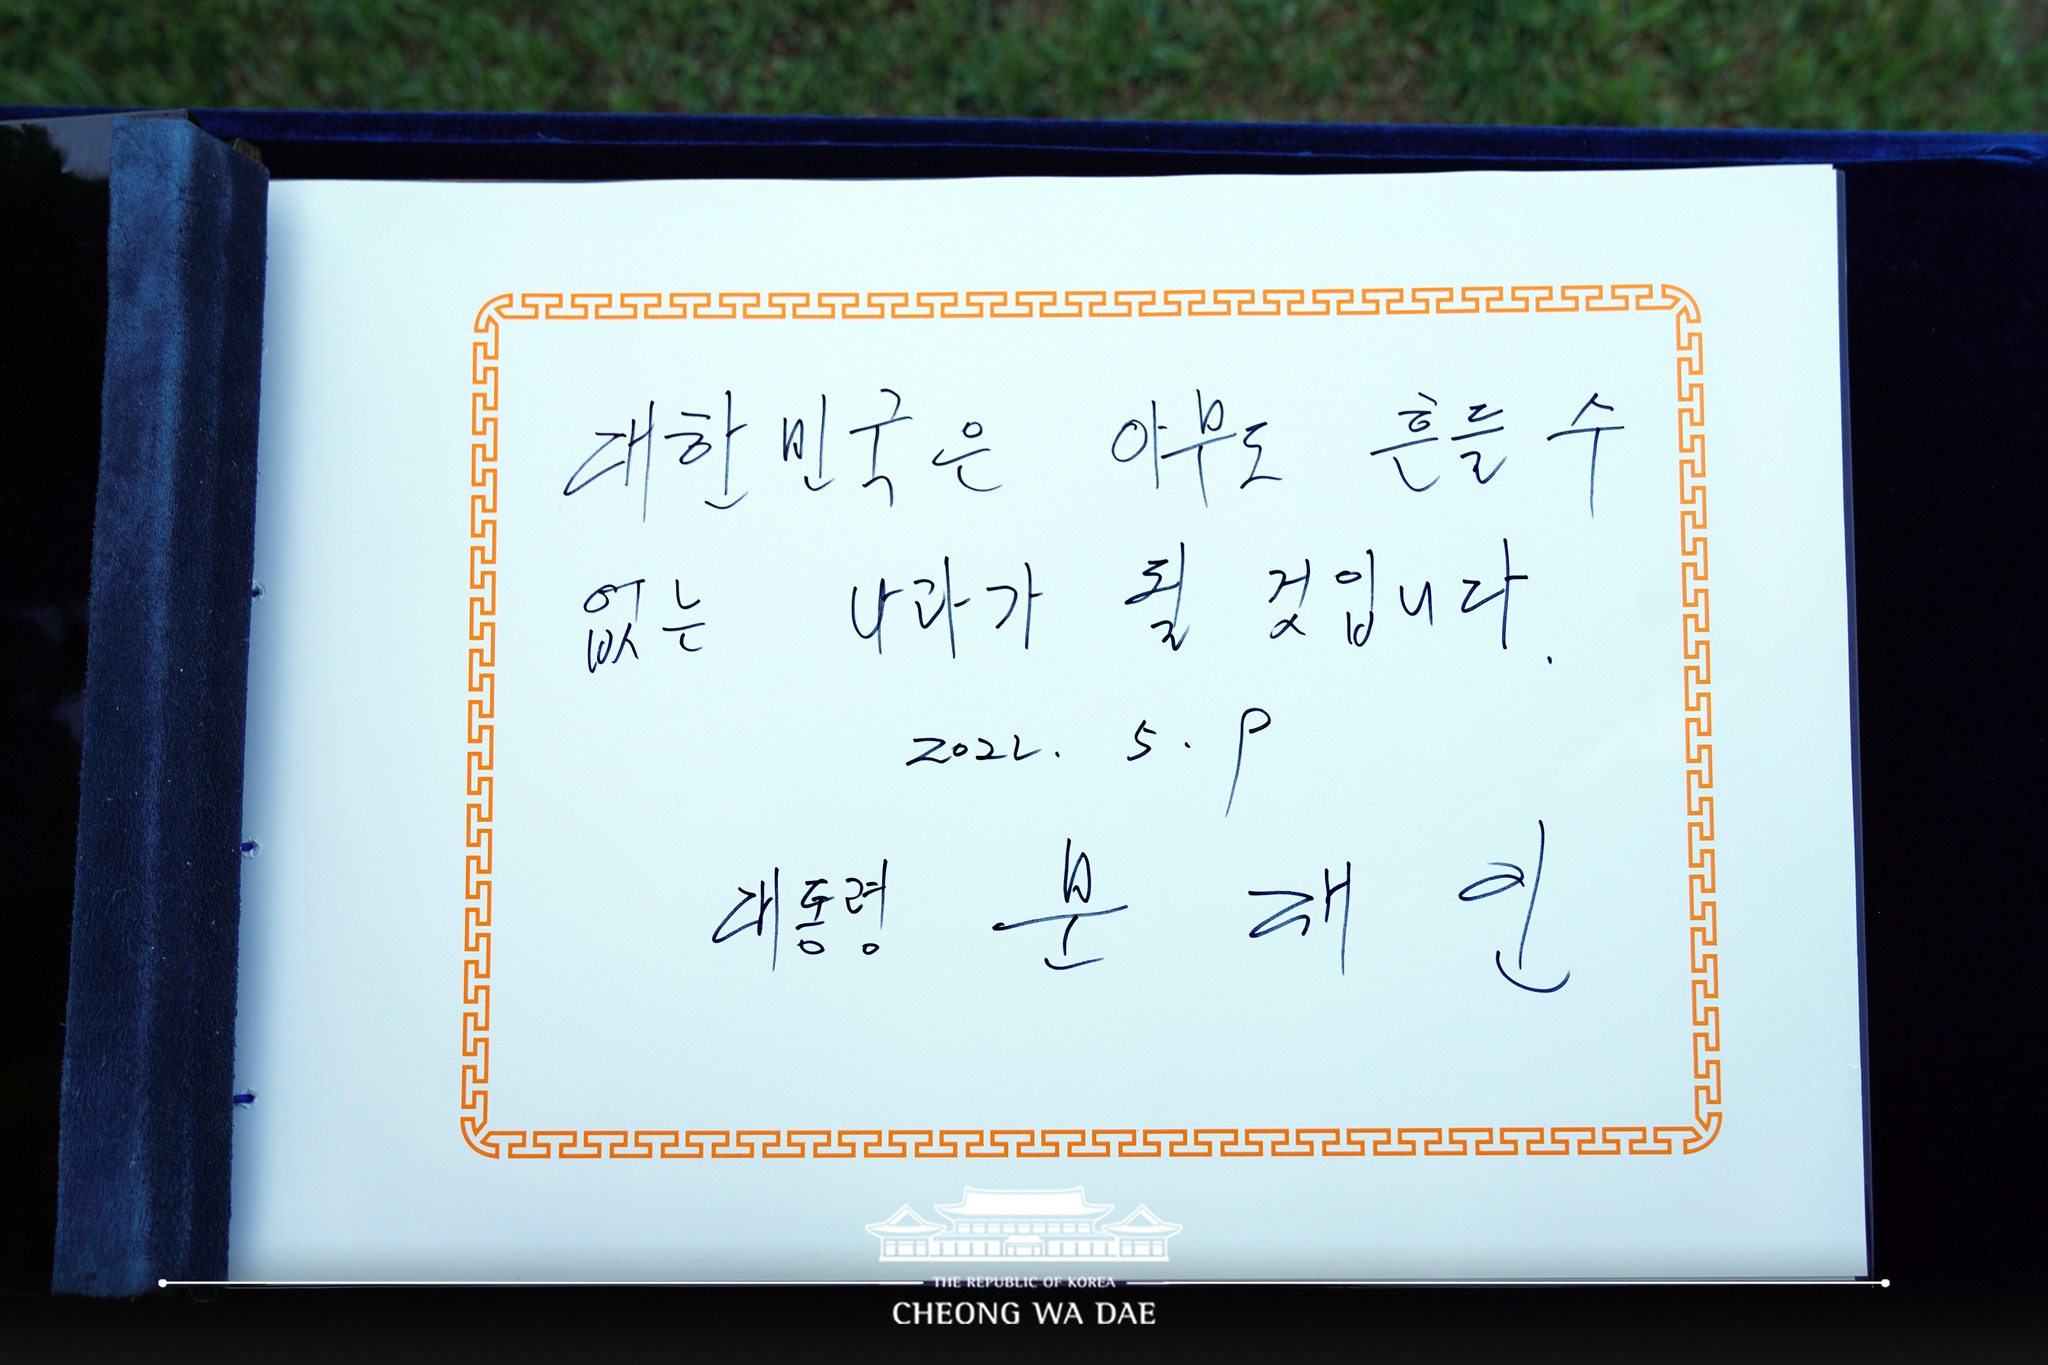 대한민국은 아무도 흔들 수
없는 나라가 될 것입니다.
2022. 5. 9
대통령 문 재 인
THE REPUBLIC OF KOREA
CHEONG WA DAE